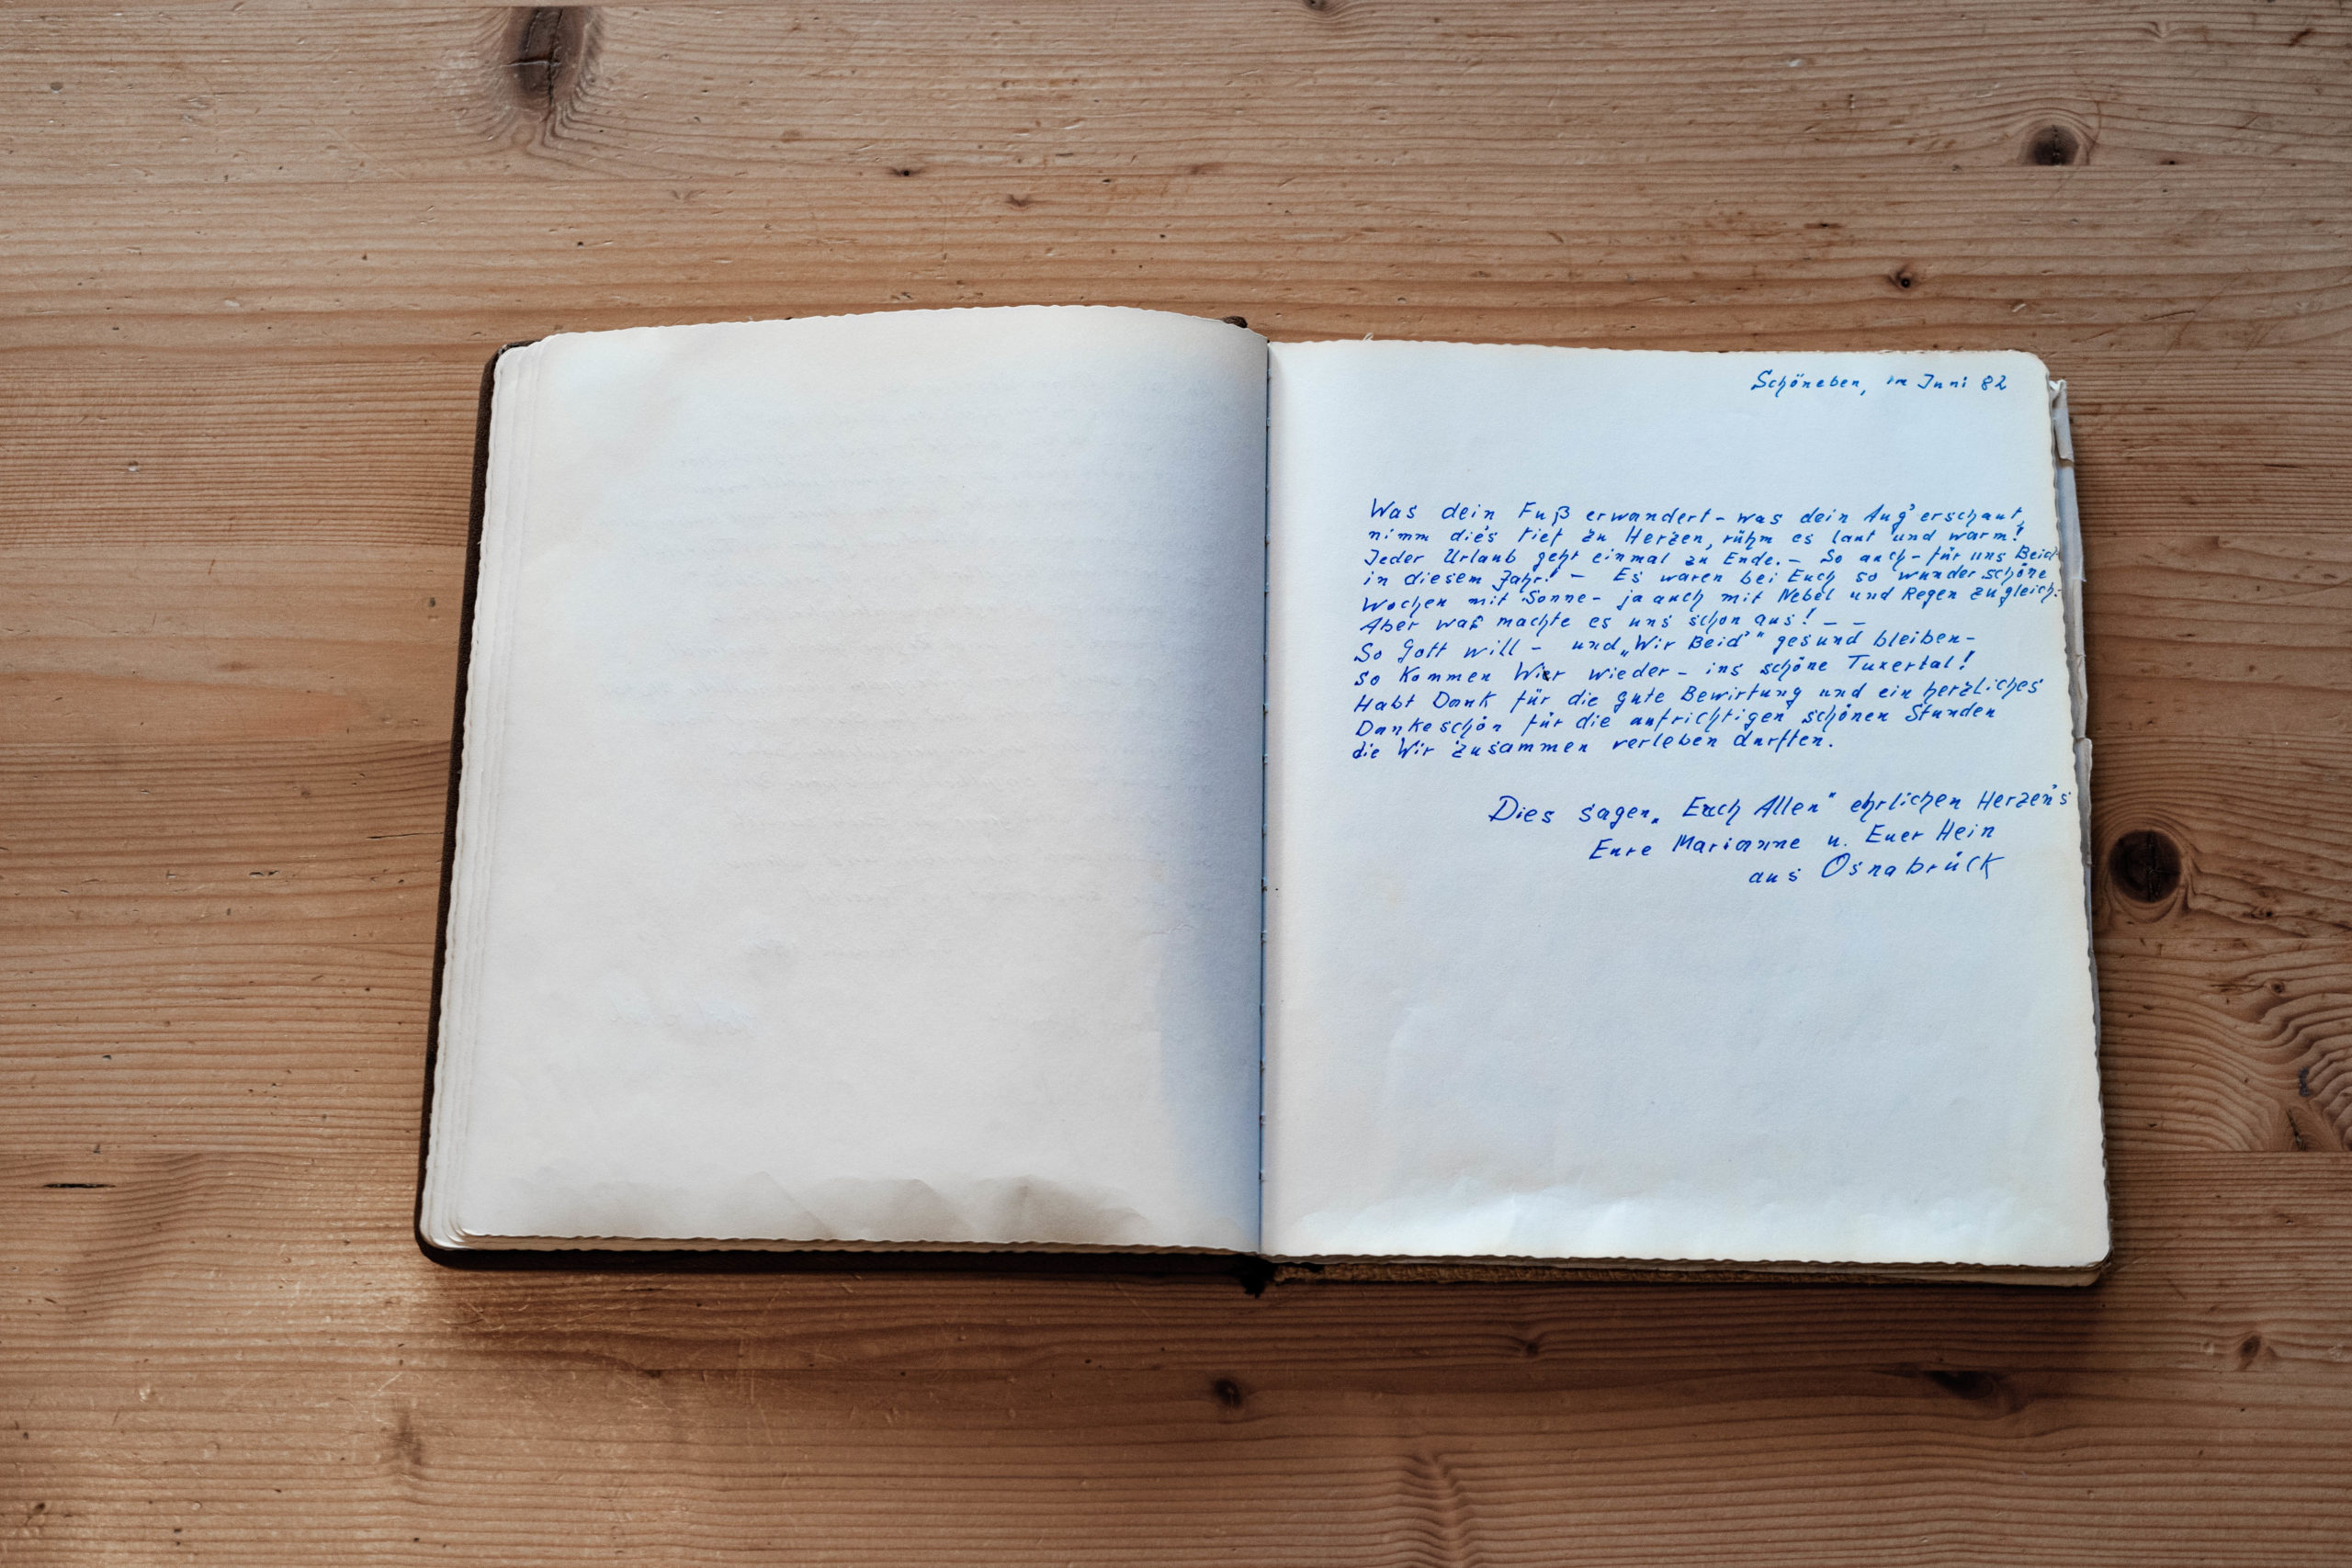 Schöneben, im Juni 82
Was dein Fuß erwandert – was dein Aug' erschaut,
nimm dies tief zu Herzen, rühm es laut und warm!
Jeder Urlaub geht einmal zu Ende. – So auch – für uns Beid'
in diesem Jahr! – Es waren bei Euch so wunderschöne
Wochen mit Sonne – ja auch mit Nebel und Regen zugleich.
Aber was machte es uns schon aus! – –
So Gott will – und „Wir Beid'" gesund bleiben –
so kommen Wir wieder – ins schöne Tuxertal!
Habt Dank für die gute Bewirtung und ein herzliches
Dankeschön für die aufrichtigen schönen Stunden
die Wir zusammen verleben durften.
Dies sagen „Euch Allen" ehrlichen Herzens
Eure Marianne u. Euer Hein
aus Osnabrück